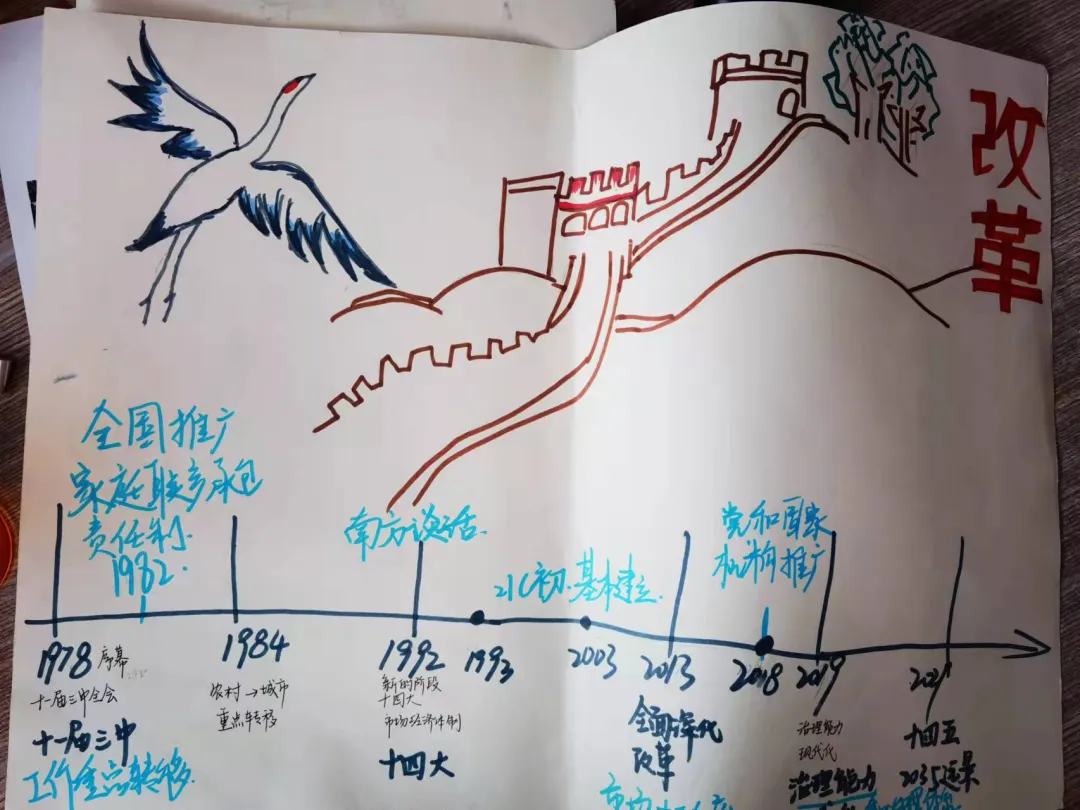 改革
全国推广
家庭联产承包
责任制
1982.
南方谈话.
21C初.基本建立.
党和国家
机构推广
1978 序幕
十一届三中全会
十一届三中
工作重点转移.
1984
农村→城市
重点转移
1992
新的阶段
十四大
市场经济体制
十四大
1993
2003
2013
全面深化
改革
2018
2019
治理能力
现代化
治理能力
2021
十四五
2035远景